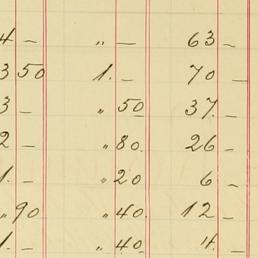 4 — „ — 63 —
3 50 1. — 70 —
3 — „ 50 37. —
2 — „ 80. 26 —
1. — „ 20 6 —
„ 90 „ 40. 12 —
1. — „ 40 4. —